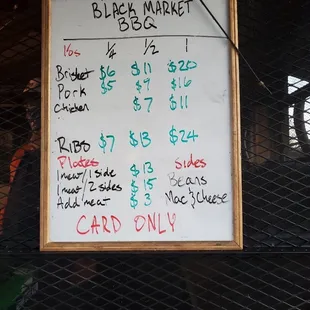 BLACK MARKET
BBQ
lbs 1/4 1/2 1
Brisket $6 $11 $20
Pork $5 $9 $16
Chicken $7 $11
RIBS $7 $13 $24
Plates Sides
1 meat/1 side $13 Beans
1 meat/2 sides $15 Mac & Cheese
Add meat $3
CARD ONLY